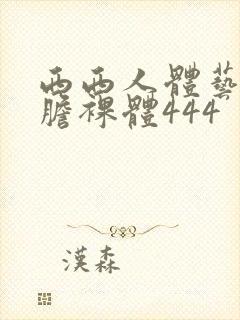 西西人體藝
膽裸體444
漢森